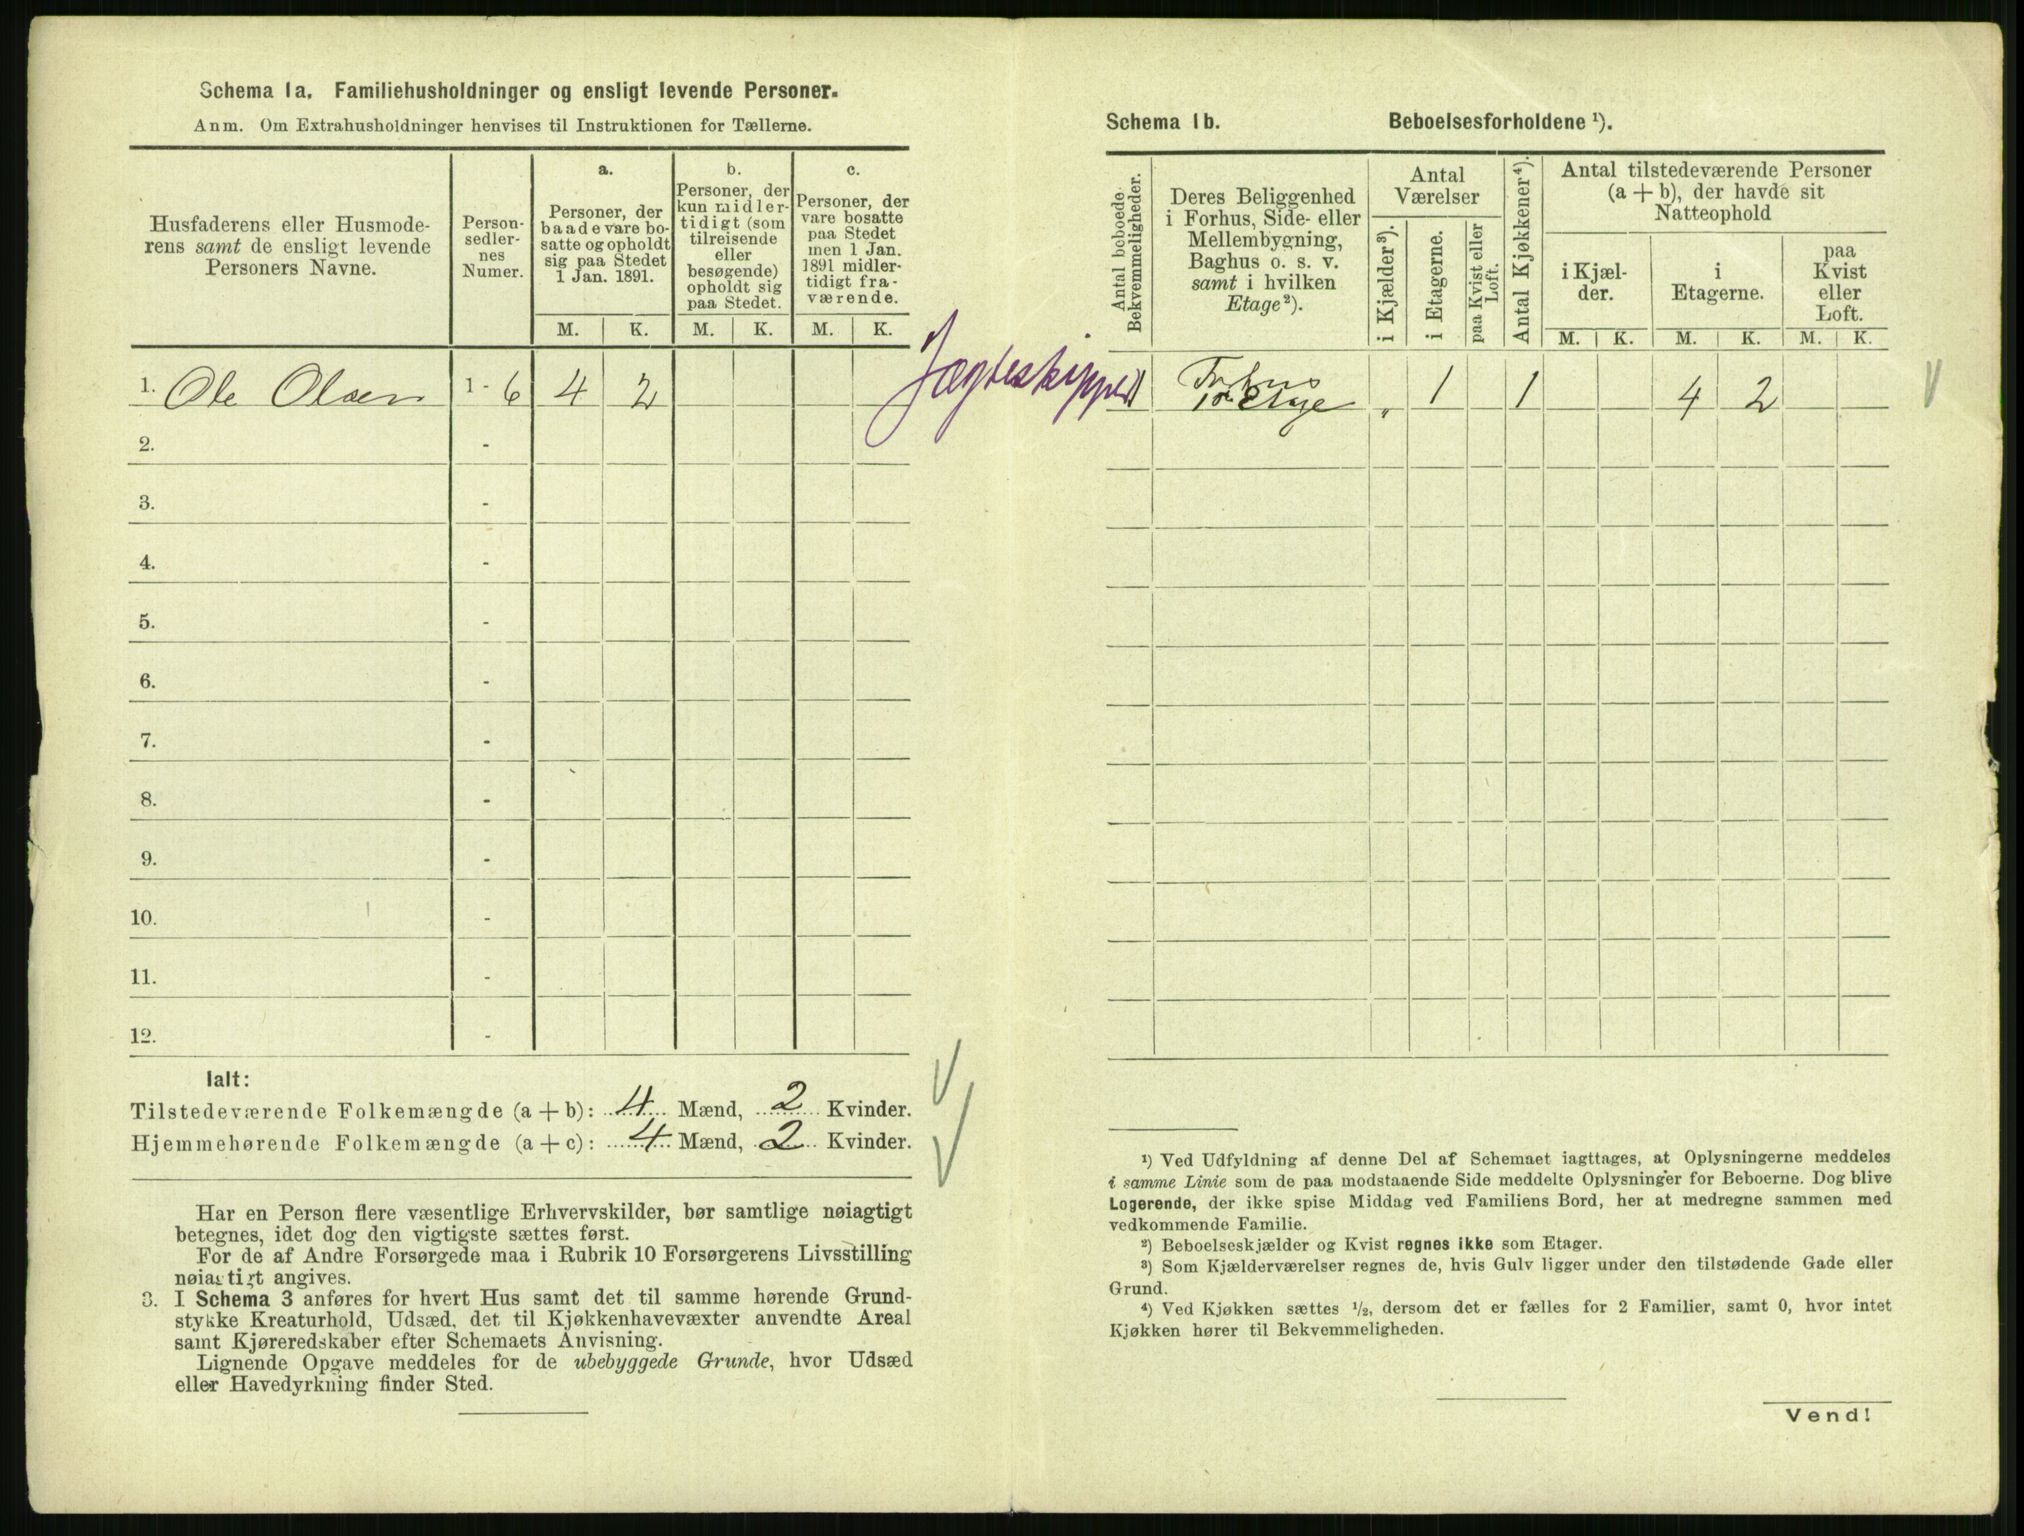 Schema 1a. Familiehusholdninger og ensligt levende Personer.
Anm. Om Extrahusholdninger henvises til Instruktionen for Tællerne.
Husfaderens eller Husmode-
rens samt de ensligt levende
Personers Navne.
Person-
sedler-
nes
Numer.
a.
Personer, der
baade vare bo-
satte og opholdt
sig paa Stedet
1 Jan. 1891.
b.
Personer, der
kun midler-
tidigt (som
tilreisende
eller
besøgende)
opholdt sig
paa Stedet.
c.
Personer, der
vare bosatte
paa Stedet
men 1 Jan.
1891 midler-
tidigt fra-
værende.
M. K. M. K. M. K.
1. Ole Olsen 1 - 6 4 2
Jægteskipper
2. -
3. -
4. -
5. -
6. -
7. -
8. -
9. -
10. -
11. -
12. -
Ialt:
Tilstedeværende Folkemængde (a + b): 4 Mænd, 2 Kvinder.
Hjemmehørende Folkemængde (a + c): 4 Mænd, 2 Kvinder.
Har en Person flere væsentlige Erhvervskilder, bør samtlige nøiagtigt
betegnes, idet dog den vigtigste sættes først.
For de af Andre Forsørgede maa i Rubrik 10 Forsørgerens Livsstilling
nøiagtigt angives.
3. I Schema 3 anføres for hvert Hus samt det til samme hørende Grund-
stykke Kreaturhold, Udsæd, det til Kjøkkenhavevæxter anvendte Areal
samt Kjøreredskaber efter Schemaets Anvisning.
Lignende Opgave meddeles for de ubebyggede Grunde, hvor Udsæd
eller Havedyrkning finder Sted.
Schema 1b. Beboelsesforholdene ¹).
Antal beboede
Bekvemmeligheder.
Deres Beliggenhed
i Forhus, Side- eller
Mellembygning,
Baghus o. s. v.
samt i hvilken
Etage²).
Antal
Værelser
i Kjælder³).
i Etagerne.
paa Kvist eller
Loft.
Antal Kjøkkener⁴).
Antal tilstedeværende Personer
(a + b), der havde sit
Natteophold
i Kjæl-
der.
i
Etagerne.
paa
Kvist
eller
Loft.
M. K. M. K. M. K.
1 Forhus
1ste Etage " 1 1 4 2
¹) Ved Udfyldning af denne Del af Schemaet iagttages, at Oplysningerne meddeles
i samme Linie som de paa modstaaende Side meddelte Oplysninger for Beboerne. Dog blive
Logerende, der ikke spise Middag ved Familiens Bord, her at medregne sammen med
vedkommende Familie.
²) Beboelseskjælder og Kvist regnes ikke som Etager.
³) Som Kjælderværelser regnes de, hvis Gulv ligger under den tilstødende Gade eller
Grund.
⁴) Ved Kjøkken sættes ½, dersom det er fælles for 2 Familier, samt 0, hvor intet
Kjøkken hører til Bekvemmeligheden.
Vend!